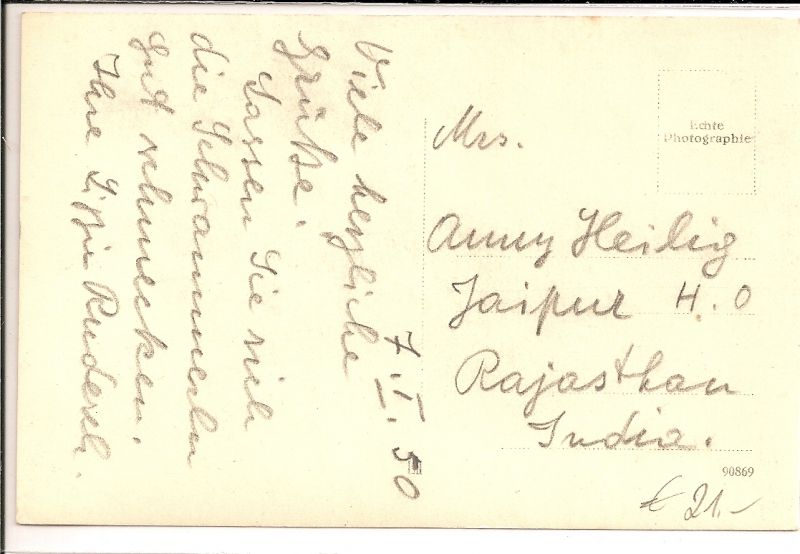 Viele herzliche
Grüße.
Lassen Sie sich
die Schwammerln
gut schmecken.
Ihre Lizzie
7.I.50
Echte
Photographie
Mrs.
Anny Heilig
Jaipur H.O
Rajasthan
India.
90869
€ 21.-